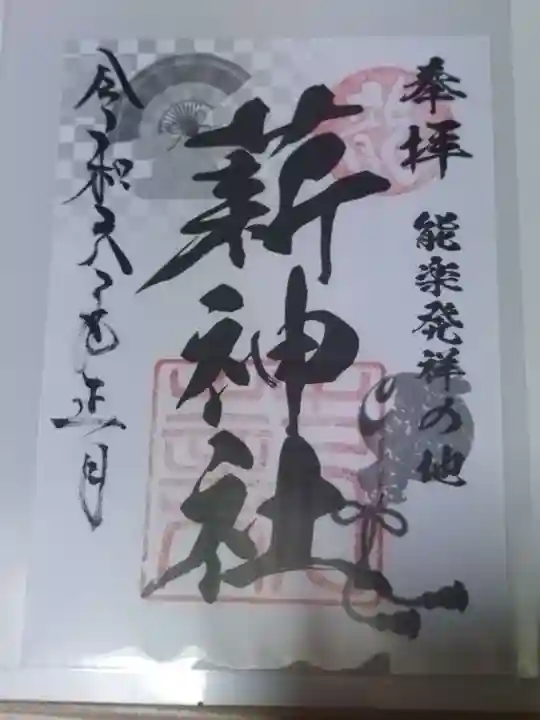 奉拝
能楽発祥の地
薪神社
令和 年正月